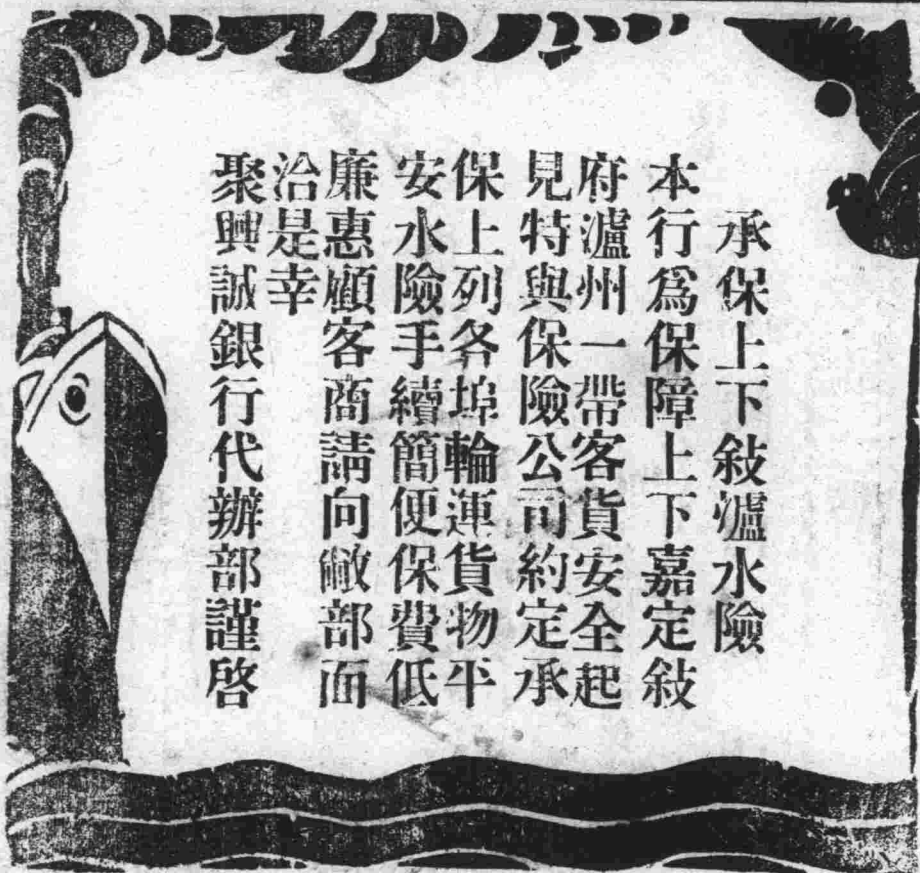 承保上下敍瀘水險
本行爲保障上下嘉定敍
府瀘州一帶客貨安全起
見特與保險公司約定承
保上列各埠輪運貨物平
安水險手續簡便保費低
廉惠顧客商請向敝部面
洽是幸
聚興誠銀行代辦部謹啓